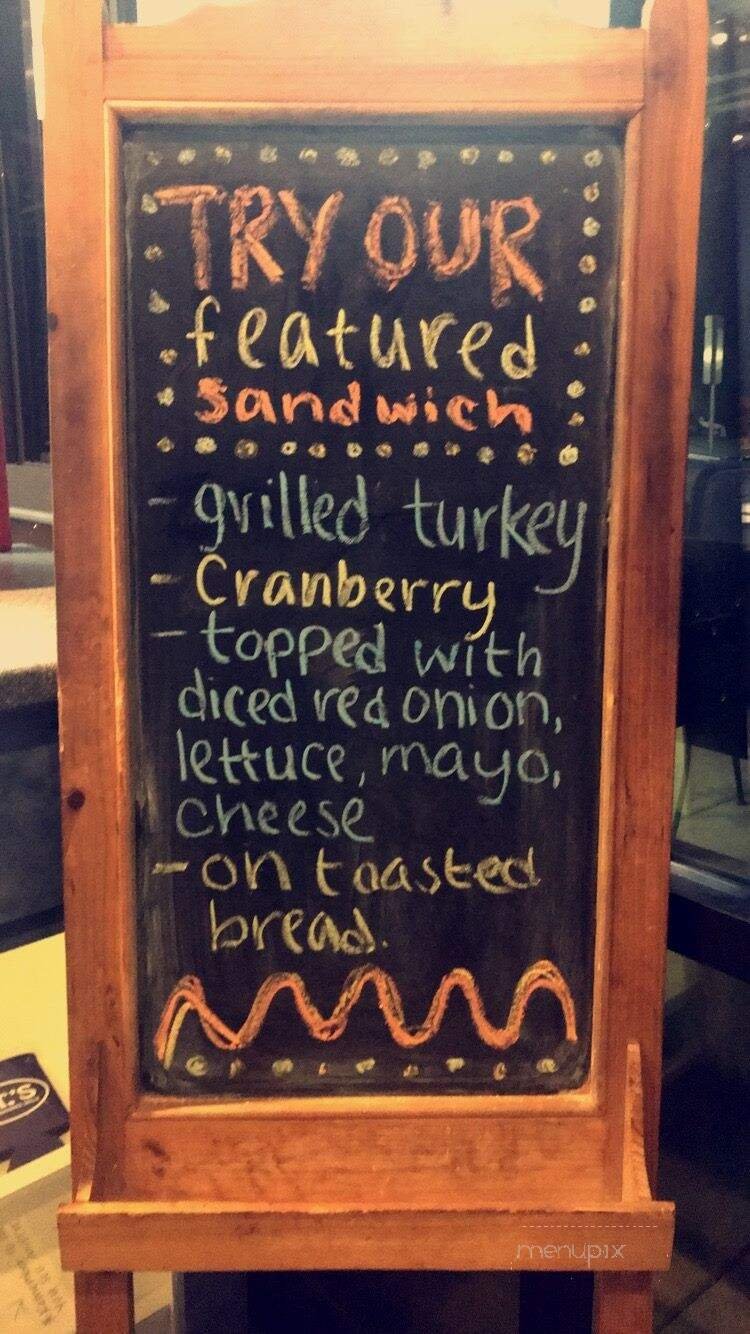 TRY OUR
featured
sandwich
- grilled turkey
- Cranberry
- topped with
diced red onion,
lettuce, mayo,
cheese
- on toasted
bread.
menupix